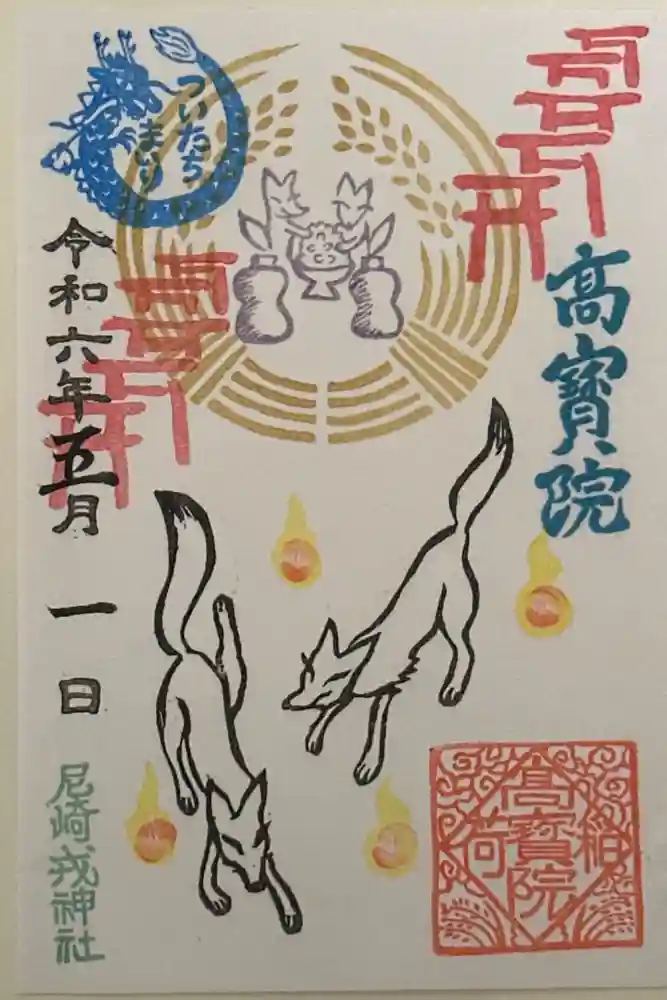 髙寶院
ついたち
まいり
令和六年五月一日
尼崎戎神社
髙寶院
稲荷